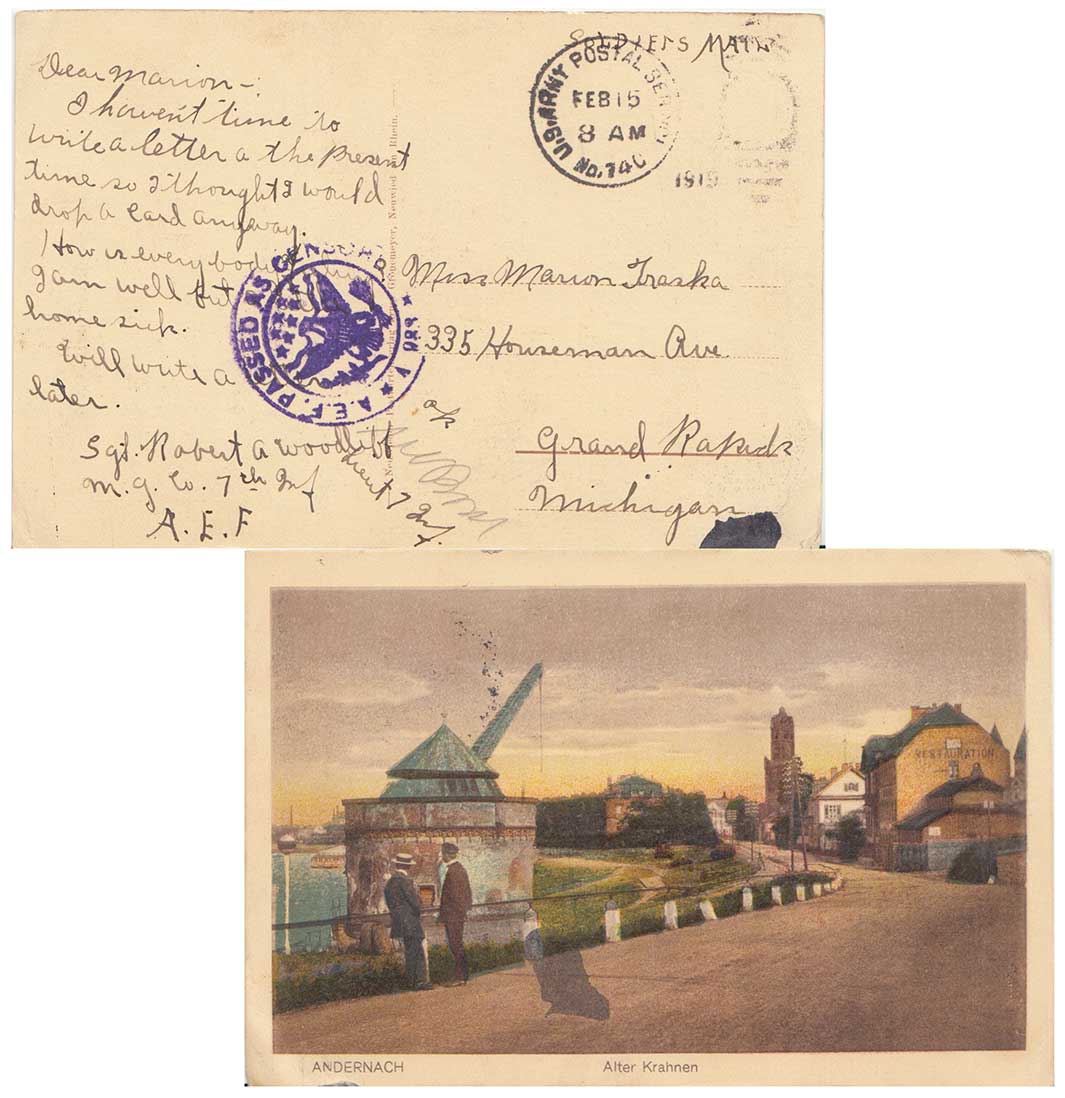 SOLDIERS MAIL
U.S. ARMY POSTAL SER
FEB 15
8 AM
NO. 740
1919
Dear Marion —
I havent time to
write a letter a the present
time so I thought I would
drop a card anyway.
How is everybody
I am well but
home sick.
Will write a
later.
Sgt. Robert A Woodliff
M. G. Co. 7th Inf
A. E. F
Miss Marion Treska
335 Houseman Ave.
Grand Rapids
Michigan
A.E.F. PASSED AS CENSORED
ok
Lieut 7 Inf.
Neuwied am Rhein.
RESTAURATION
ANDERNACH
Alter Krahnen